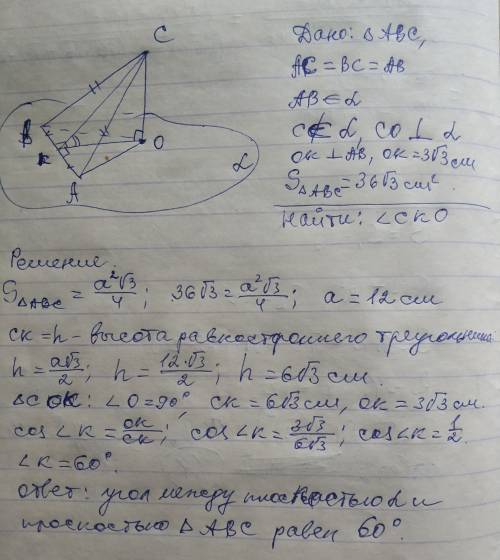 C
B
K
A
O
α
Дано: △ABC,
AC = BC = AB
AB ∈ α
C ∉ α, CO ⊥ α
OK ⊥ AB, OK = 3√3 см
S△ABC = 36√3 см².
Найти: ∠CKO
Решение.
S△ABC = a²√3/4; 36√3 = a²√3/4; a = 12 см
CK = h - высота равностроннего треугольника
h = a√3/2; h = 12·√3/2; h = 6√3 см.
△COK: ∠O = 90°, CK = 6√3 см, OK = 3√3 см.
cos∠K = OK/CK; cos∠K = 3√3/6√3; cos∠K = 1/2.
∠K = 60°.
Ответ: угол между плоскостью α и
плоскостью △ABC равен 60°.